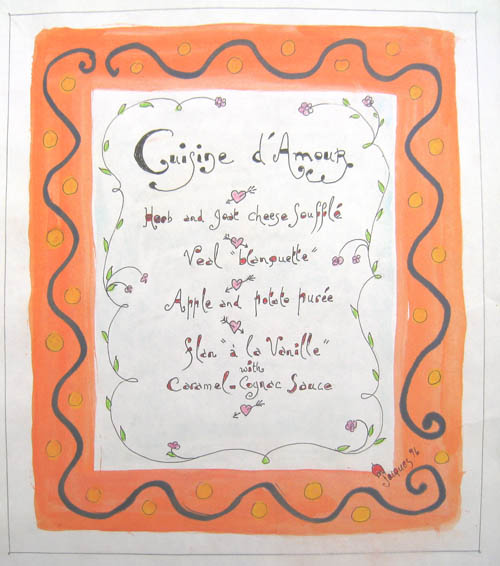 Cuisine d'Amour
Herb and goat cheese Soufflé
Veal "blanquette"
Apple and potato purée
flan "à la Vanille"
with
Caramel-Cognac Sauce
Jacques 96